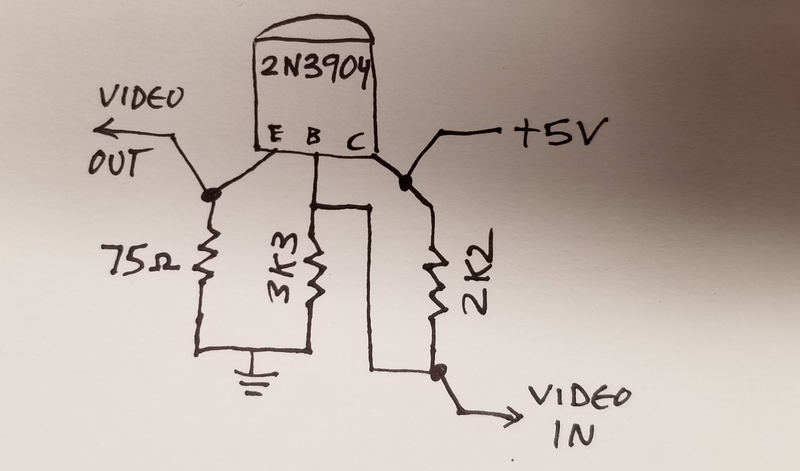 2N3904
VIDEO
OUT
E B C
+5V
75Ω
3K3
2K2
VIDEO
IN